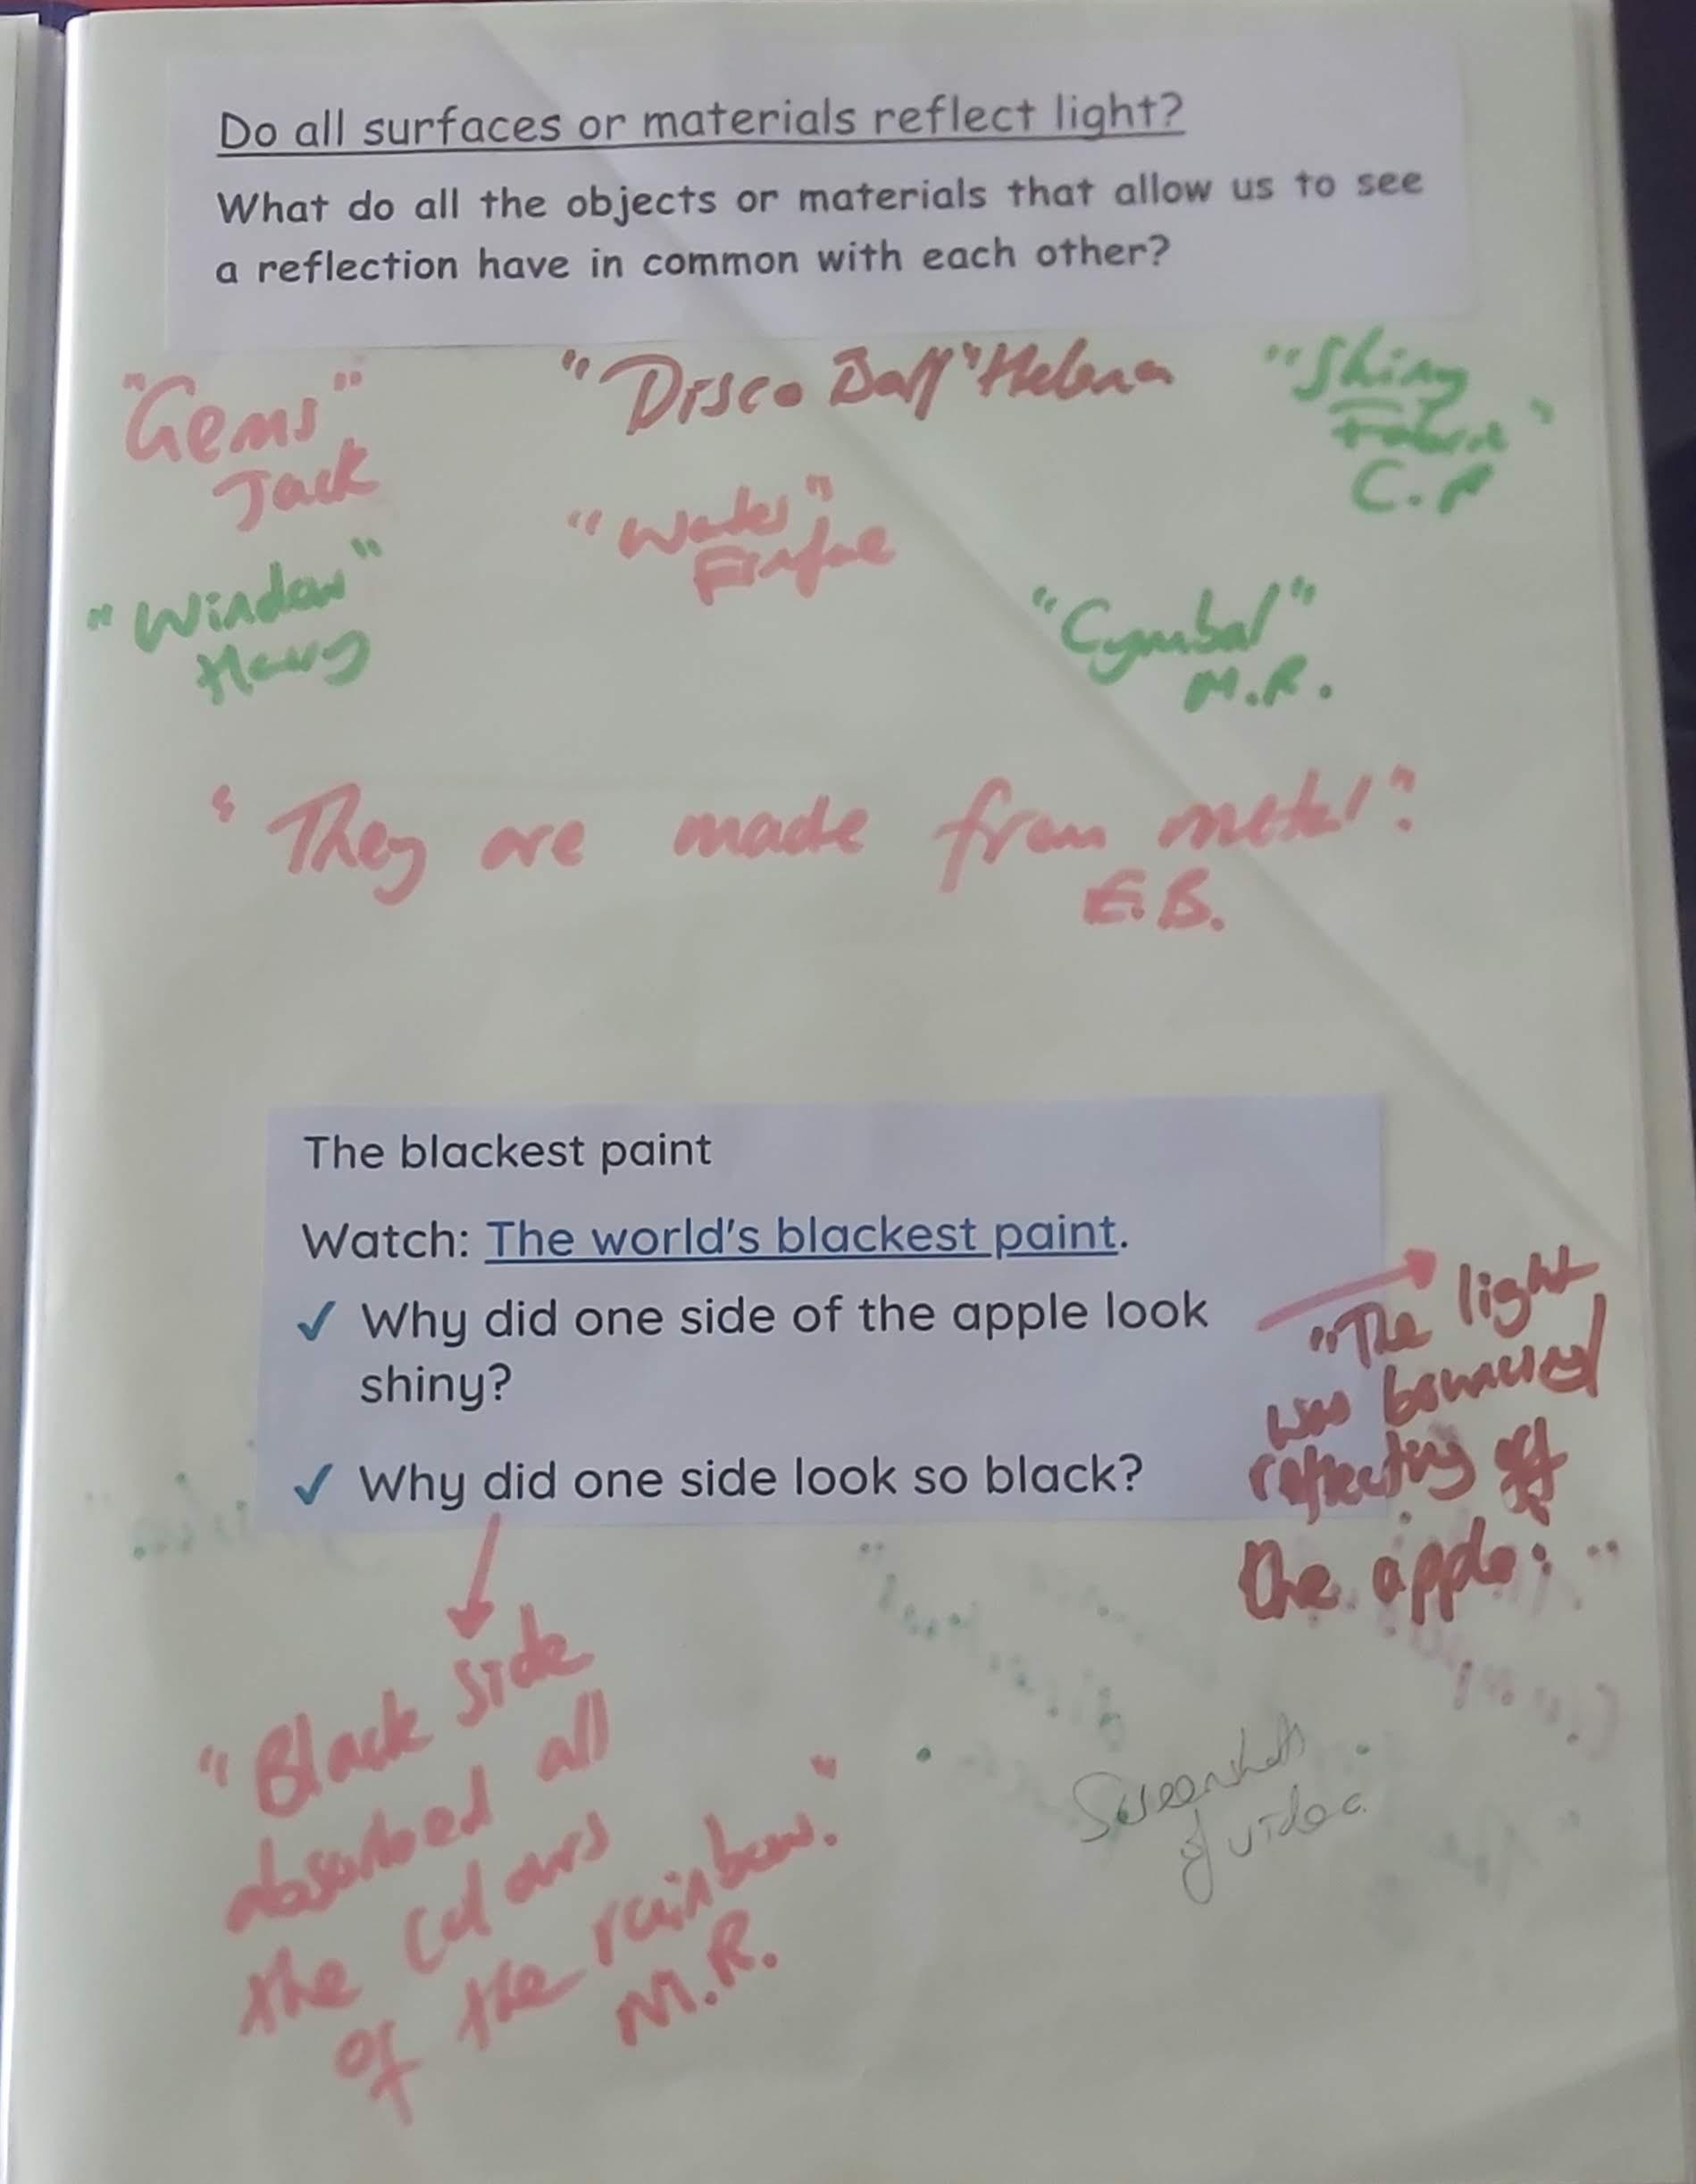 Do all surfaces or materials reflect light?
What do all the objects or materials that allow us to see
a reflection have in common with each other?
"Gems"
Jack
"Disco Ball" Helena
"Shiny
Fabric"
C.P
"Water"
"Window"
Henry
"Cymbal"
M.R.
"They are made from metal".
E.B.
The blackest paint
Watch: The world's blackest paint.
✓ Why did one side of the apple look
shiny?
"The light
was bounced
reflecting off
the apple."
✓ Why did one side look so black?
"Black side
absorbed all
the colours
of the rainbow."
M.R.
Screenshots
of video